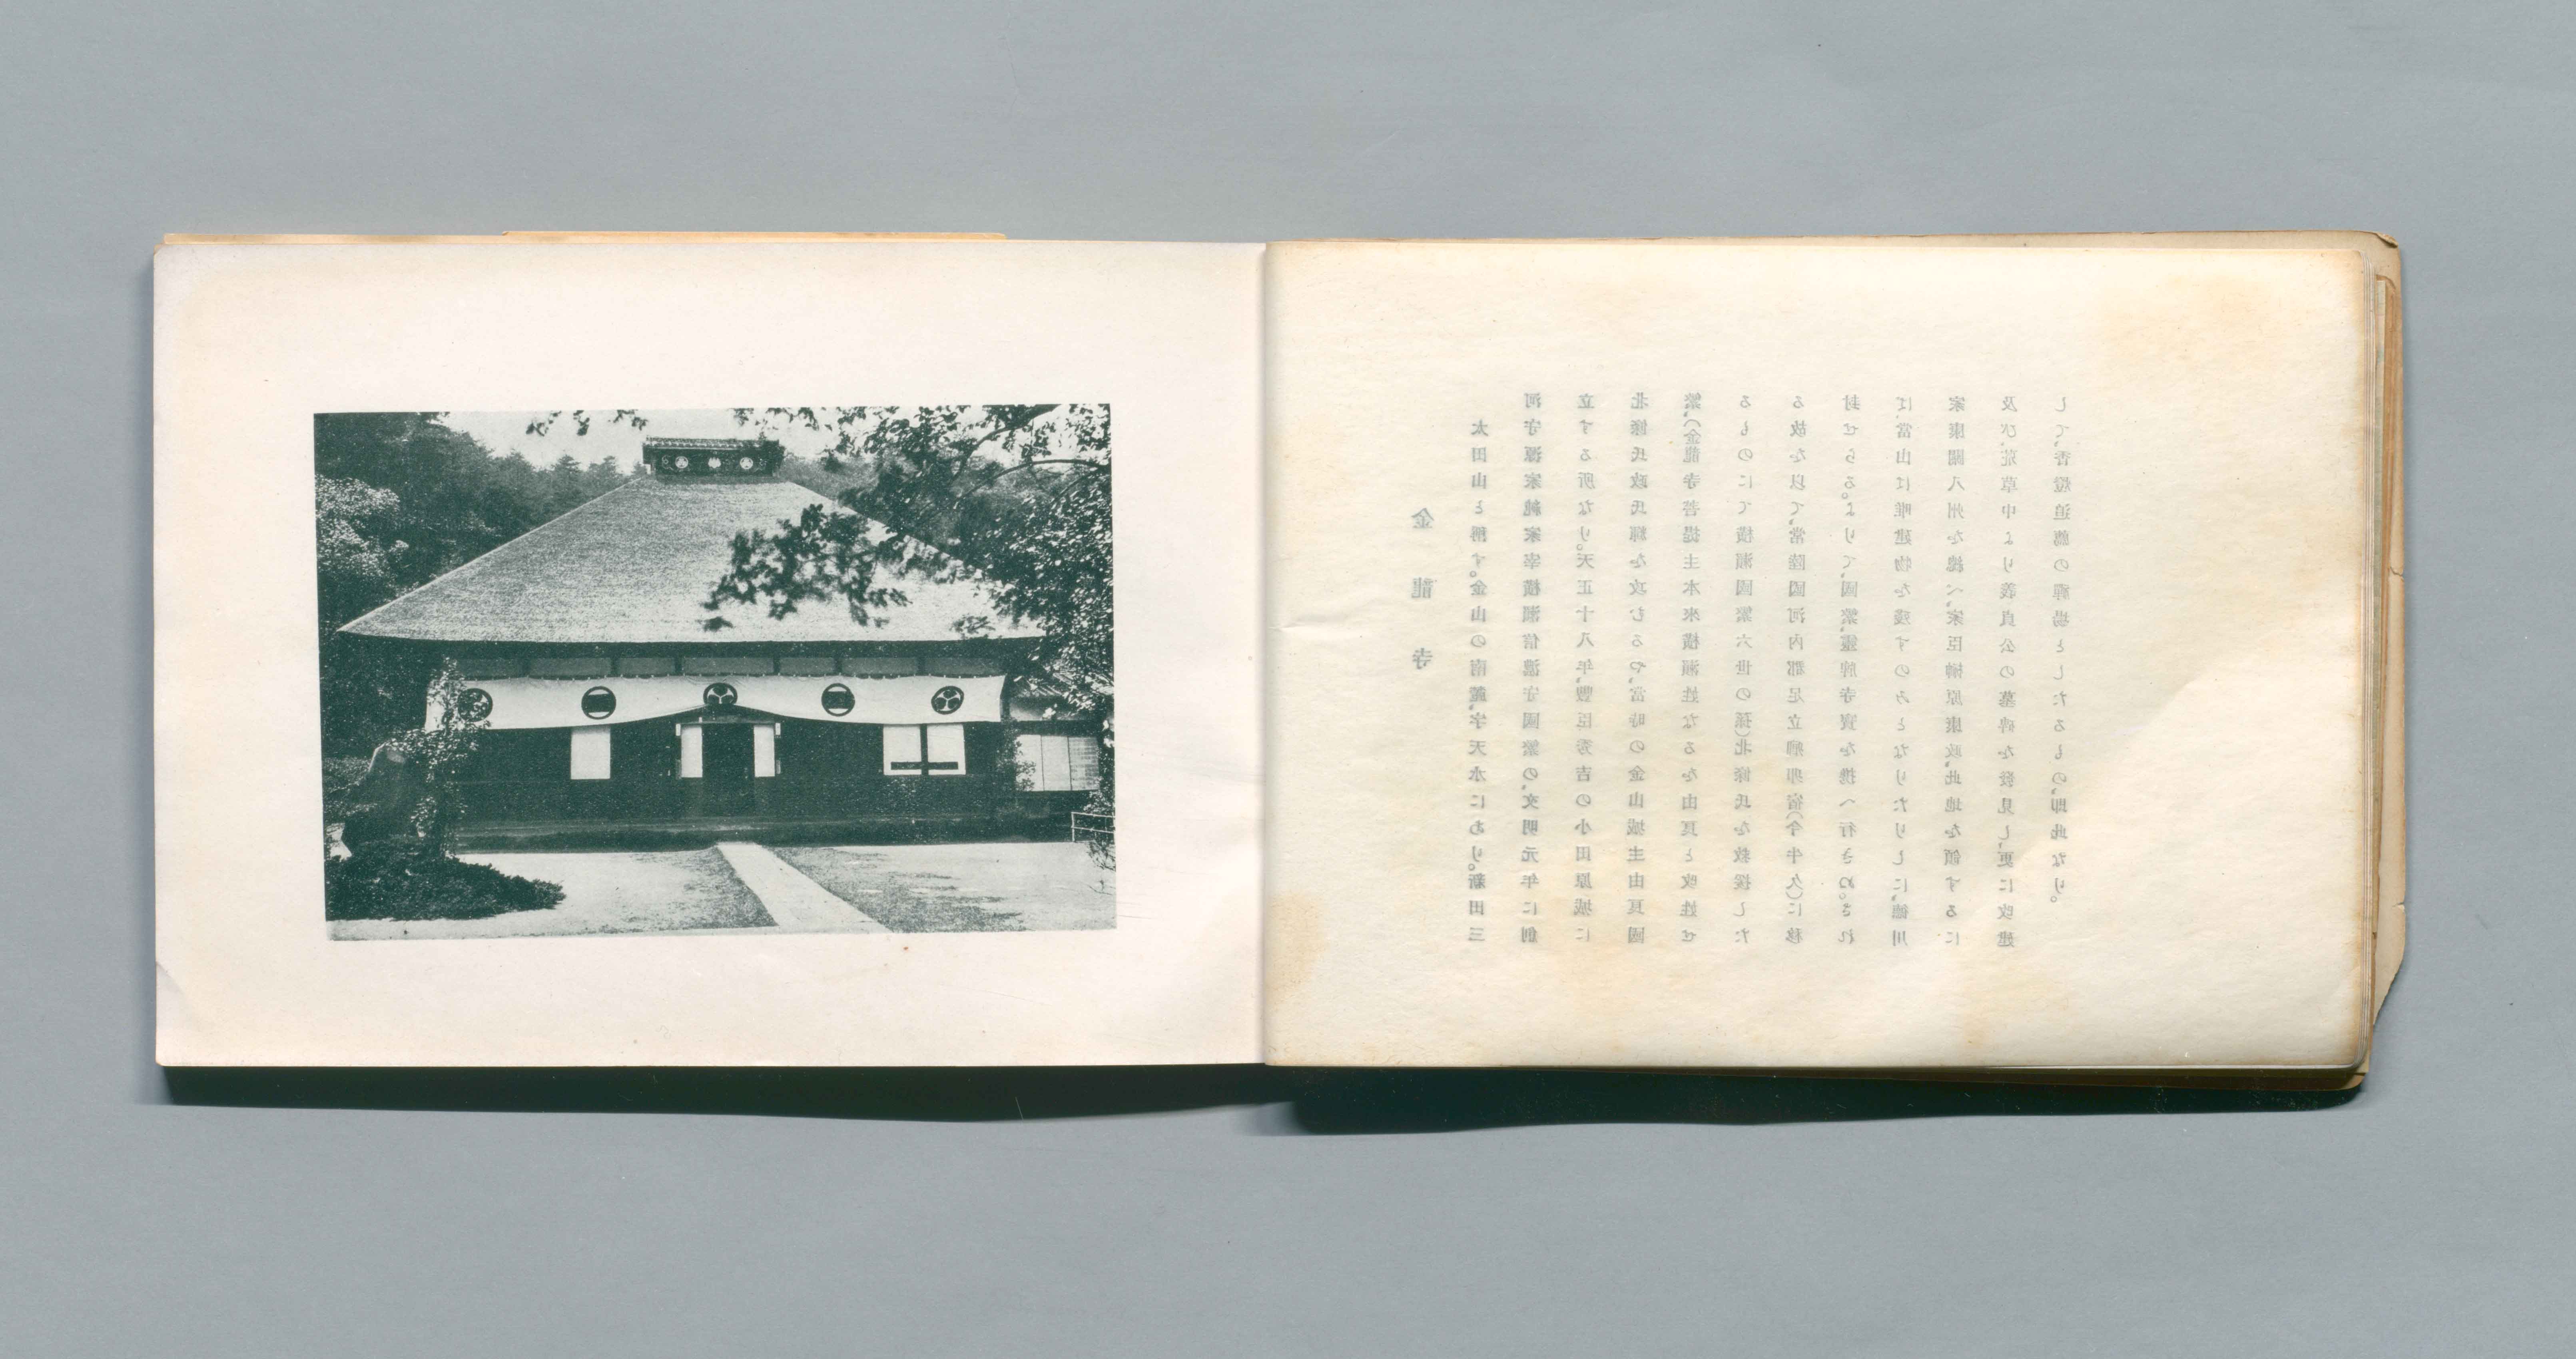 金龍寺
太田山と稱す。金山の南麓、字天水にあり。新田三
河守源家純家宰横瀬信濃守國繁の、文明元年に創
立する所なり。天正十八年、豐臣秀吉の小田原城に
北條氏政氏輝を攻むるや、當時の金山城主由良國
繁、(金龍寺菩提主本來横瀬姓なるを由良と改姓せ
るものにて横瀬國繁六世の孫)北條氏を救援した
る故を以て、常陸國河内郡足立郷宿(今牛久)に移
封せらる。よりて、國繁、靈牌寺寶を携へ行きぬ。され
ば、當山は唯建物を殘すのみとなりたりしに、德川
家康關八州を總べ、家臣榊原康政、此地を領するに
及び、荒草中より義貞公の墓碑を發見し、更に改建
して、香燈追薦の禪場としたるもの、即此なり。